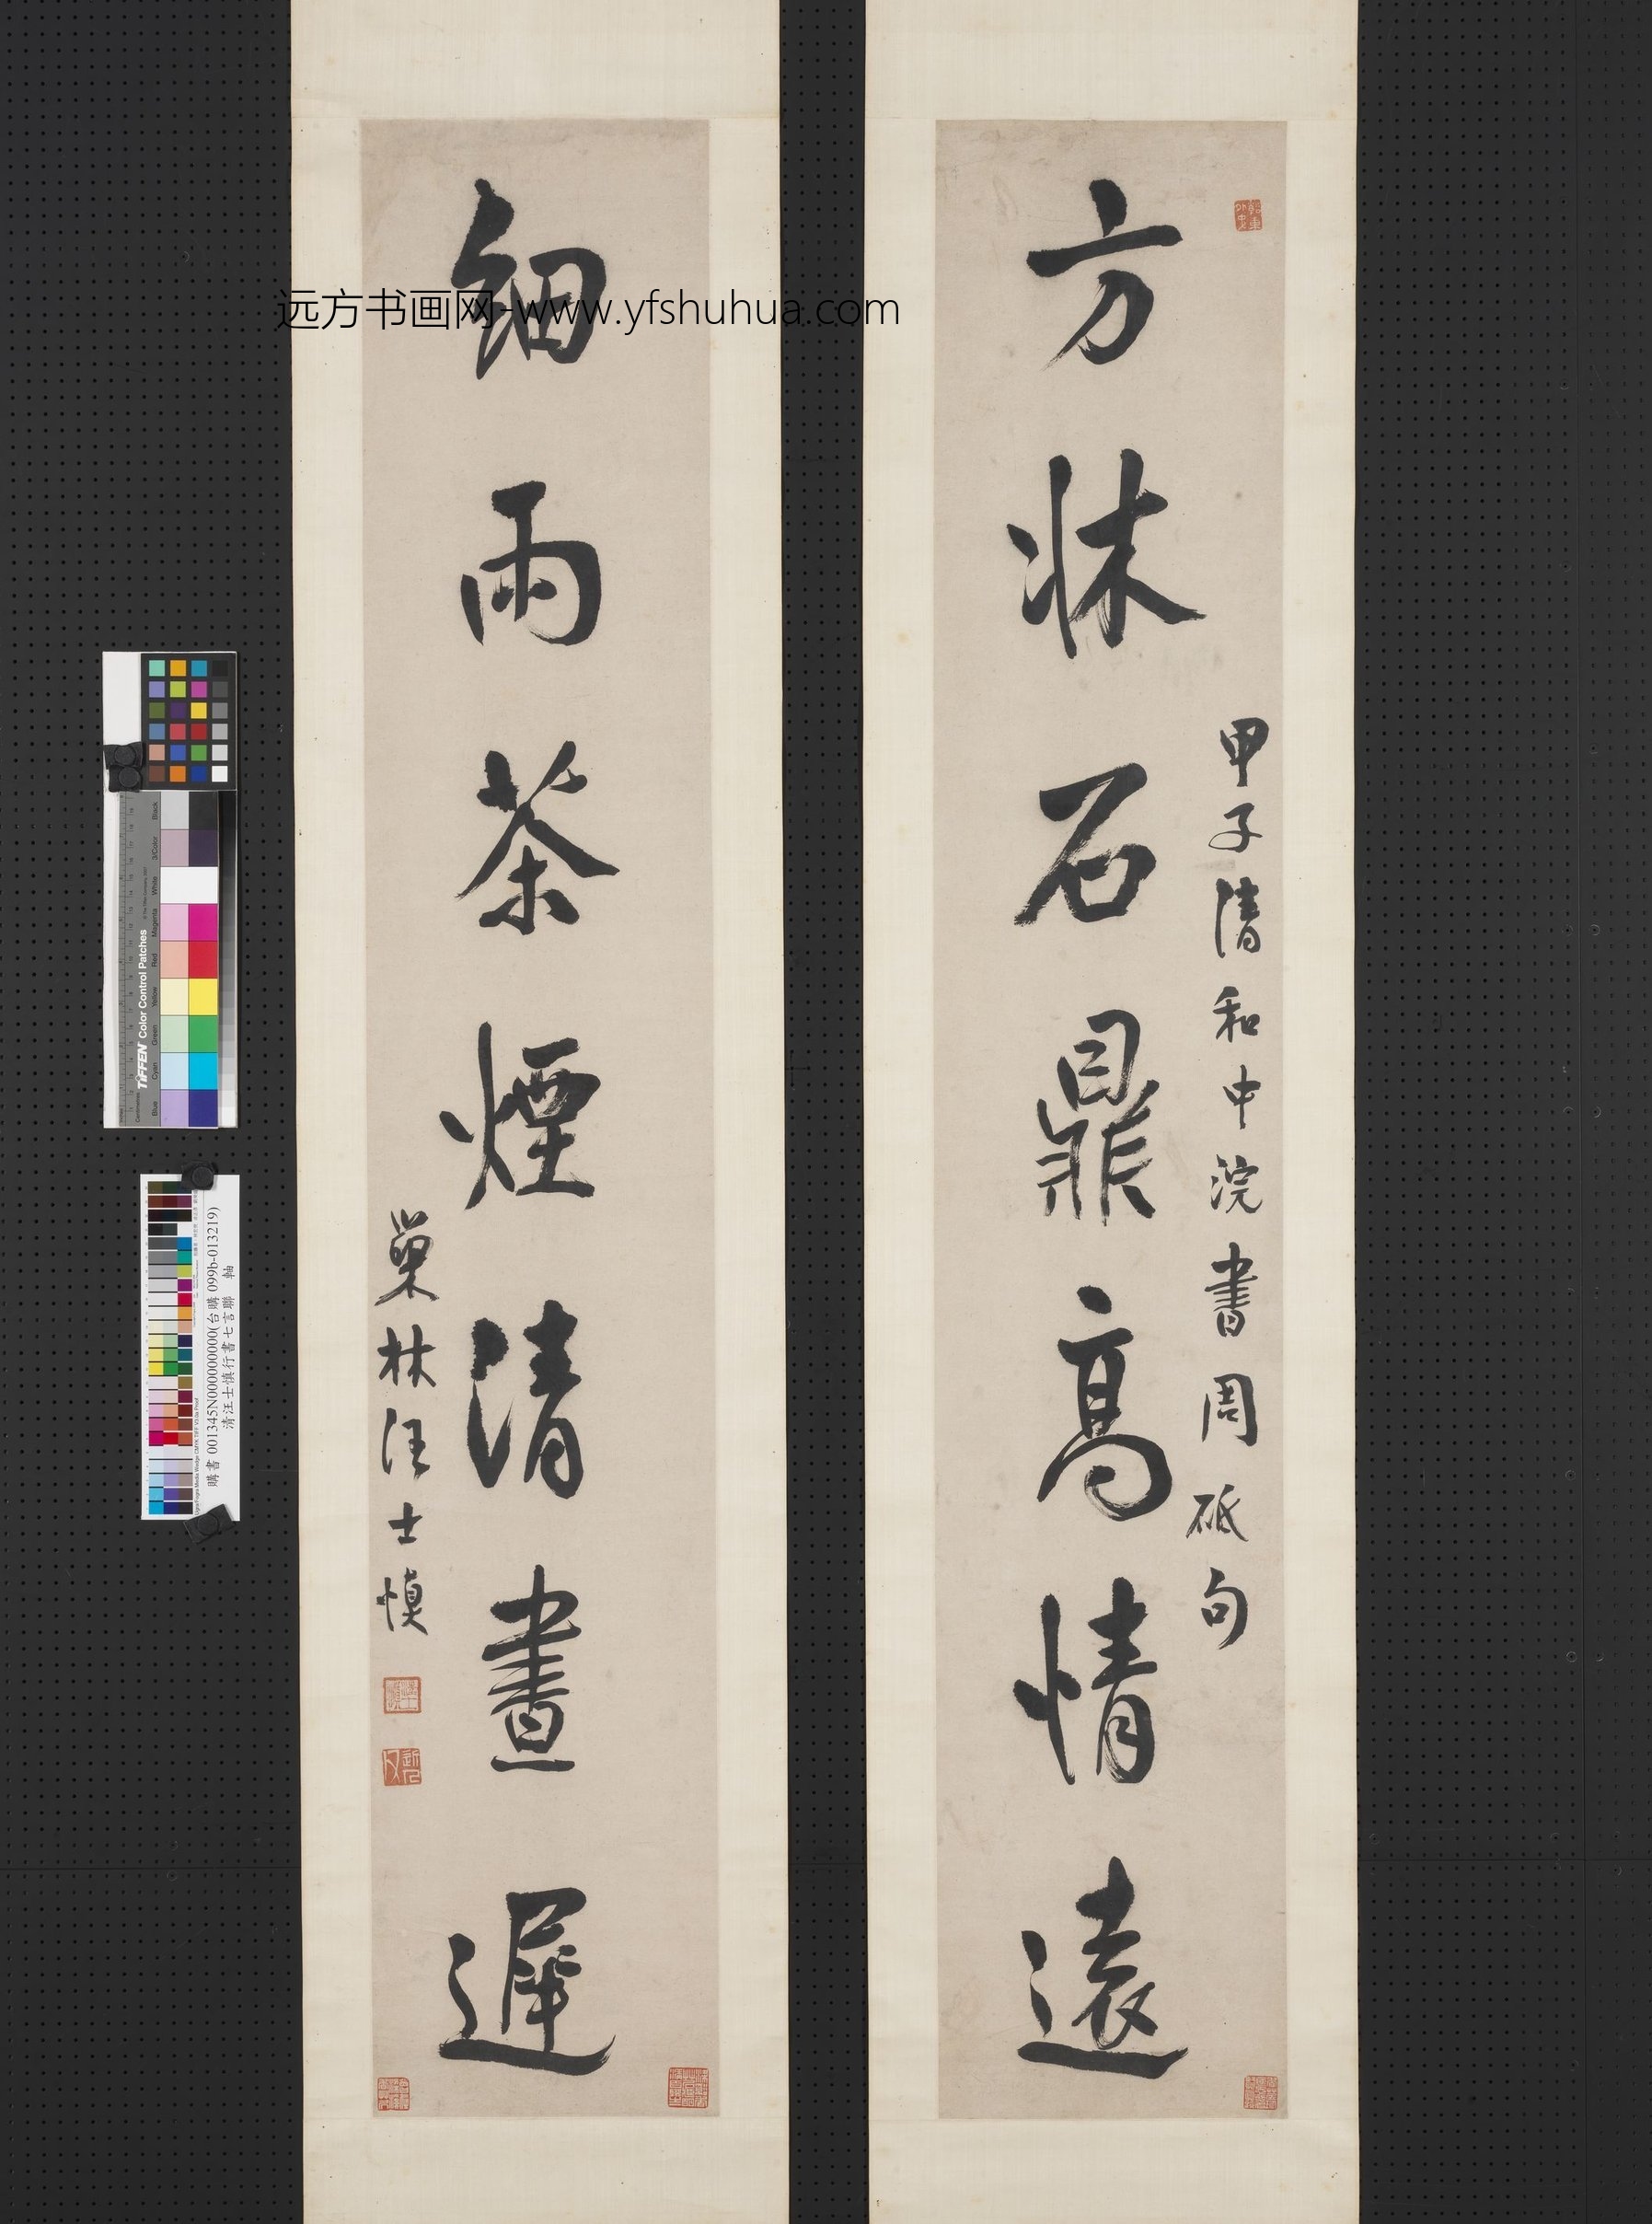 方牀石鼎高情遠
甲子清和中浣書周砥句
細雨茶煙清晝遲
巢林汪士慎
远方书画网-www.yfshuhua.com
購書 001345N000000000(台購 099b-013219)
清汪士慎行書七言聯 軸
TIFFEN Color Control Patches
Blue Cyan Green Yellow Red Magenta White 3/Color Black